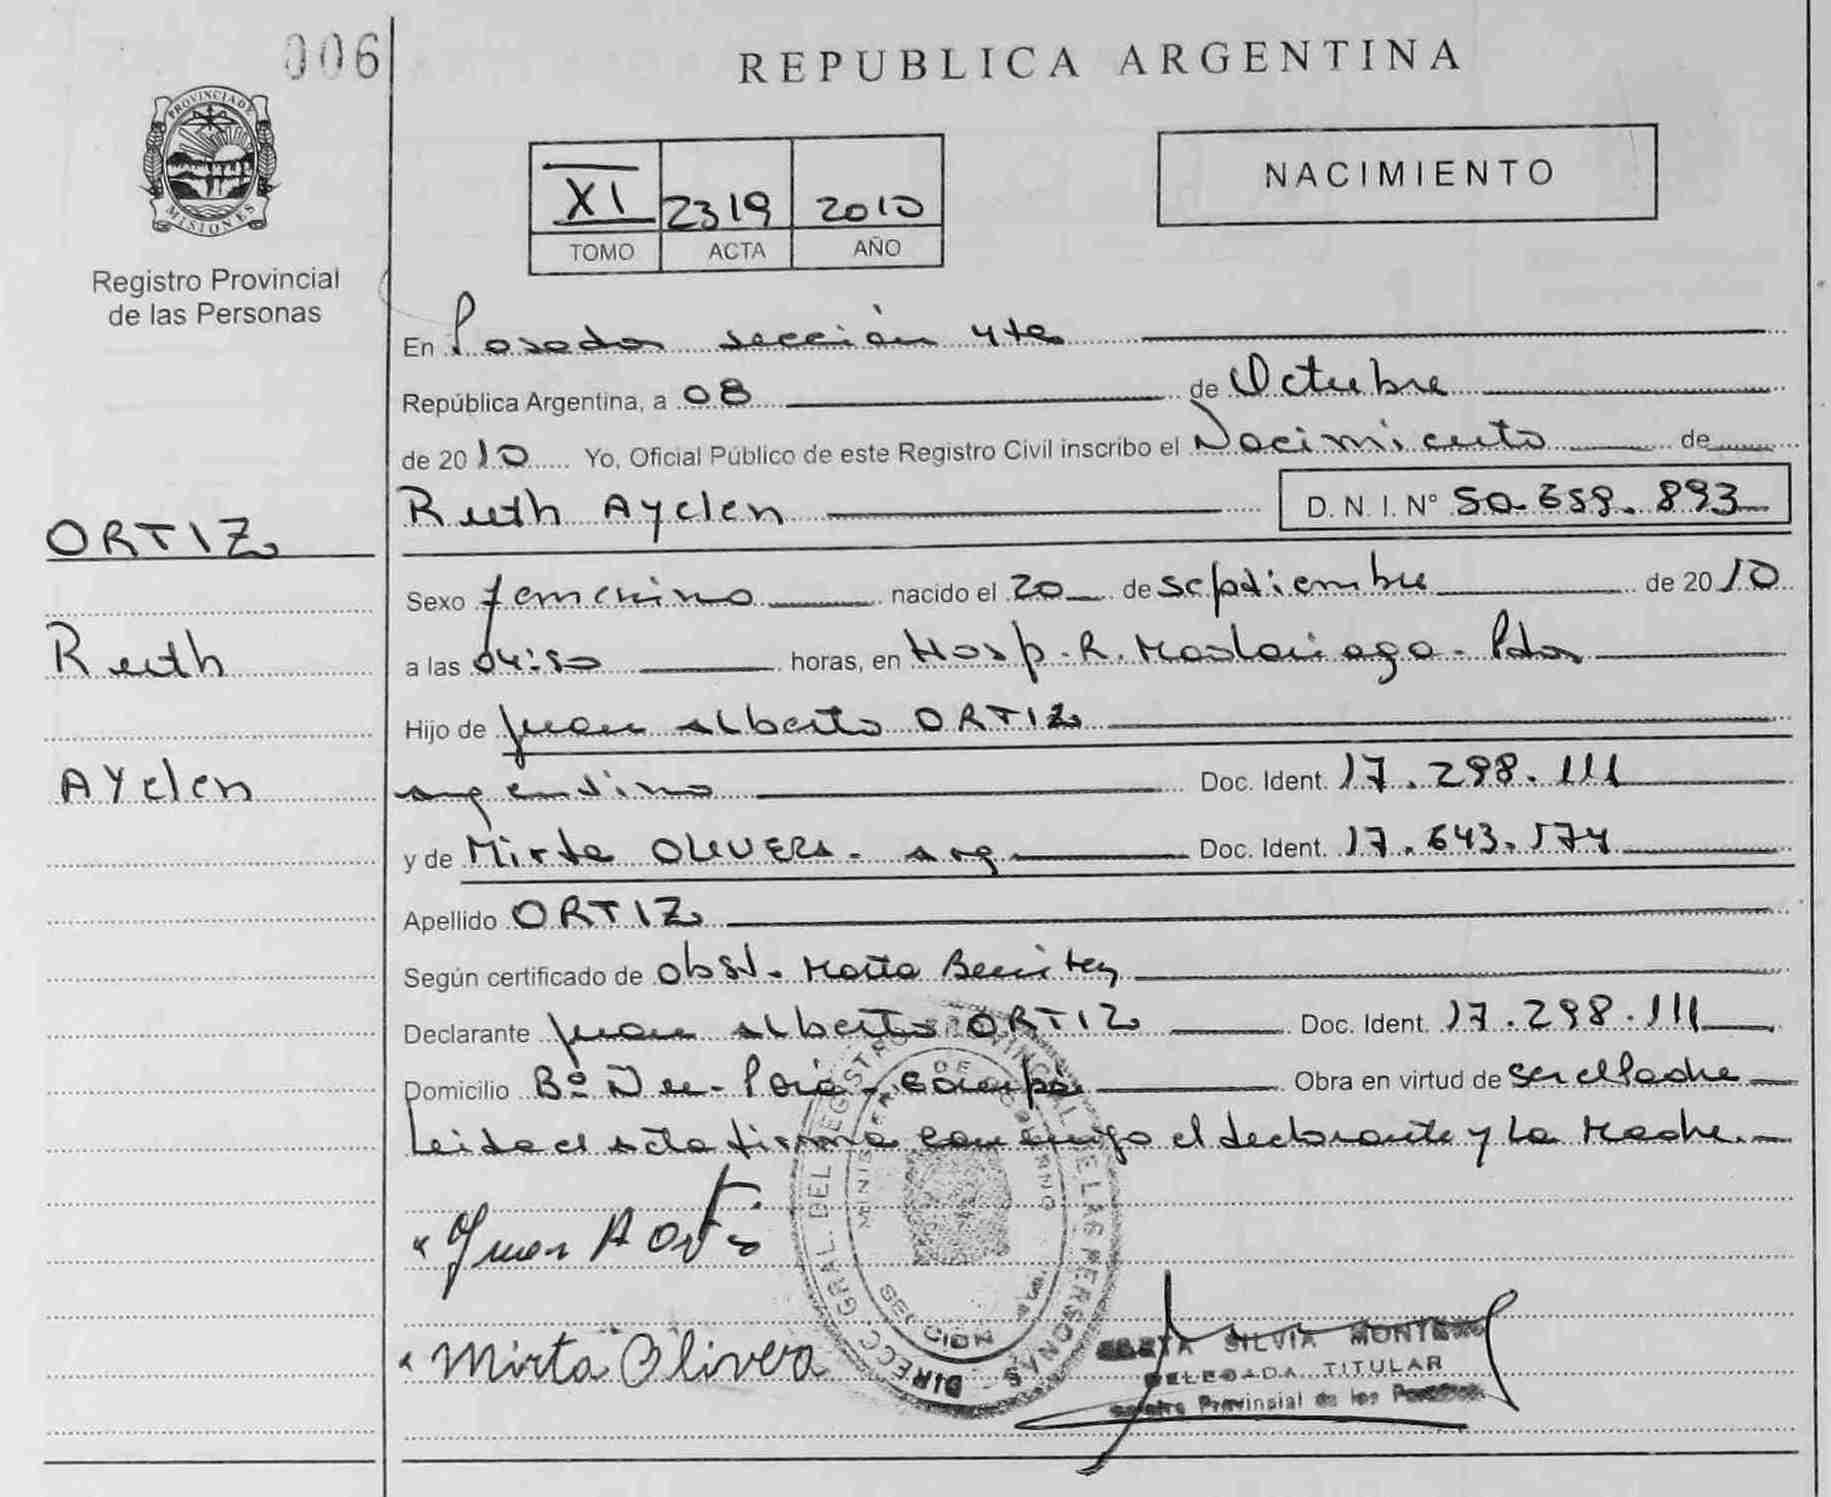 006
REPUBLICA ARGENTINA
PROVINCIA DE
MISIONES
Registro Provincial
de las Personas
XI 2319 2010
TOMO ACTA AÑO
NACIMIENTO
En Posadas sección 4ta
República Argentina, a 08 de Octubre
de 2010 Yo, Oficial Público de este Registro Civil inscribo el Nacimiento de
Ruth Ayclen D. N. I. N° 50.659.893
ORTIZ
Ruth
AYclen
Sexo femenino nacido el 20 de septiembre de 2010
a las 04:50 horas, en Hosp. R. Madariaga - Pdas
Hijo de Juan Alberto ORTIZ
argentino Doc. Ident. 17.298.111
y de Mirta OLIVERA - arg Doc. Ident. 17.643.174
Apellido ORTIZ
Según certificado de obst. Marta Benitez
Declarante Juan Alberto ORTIZ Doc. Ident. 17.298.111
Domicilio Bº Ñu - Porá - Garupá Obra en virtud de ser el Padre
Leida el acta firma conmigo el declarante y La Madre.
Juan A Ortis
Mirta Olivera
DIRECC. GRAL. DEL REGISTRO PROVINCIAL DE LAS PERSONAS
MINISTERIO DE GOBIERNO
SILVIA MONTERO
DELEGADA TITULAR
Registro Provincial de las Personas